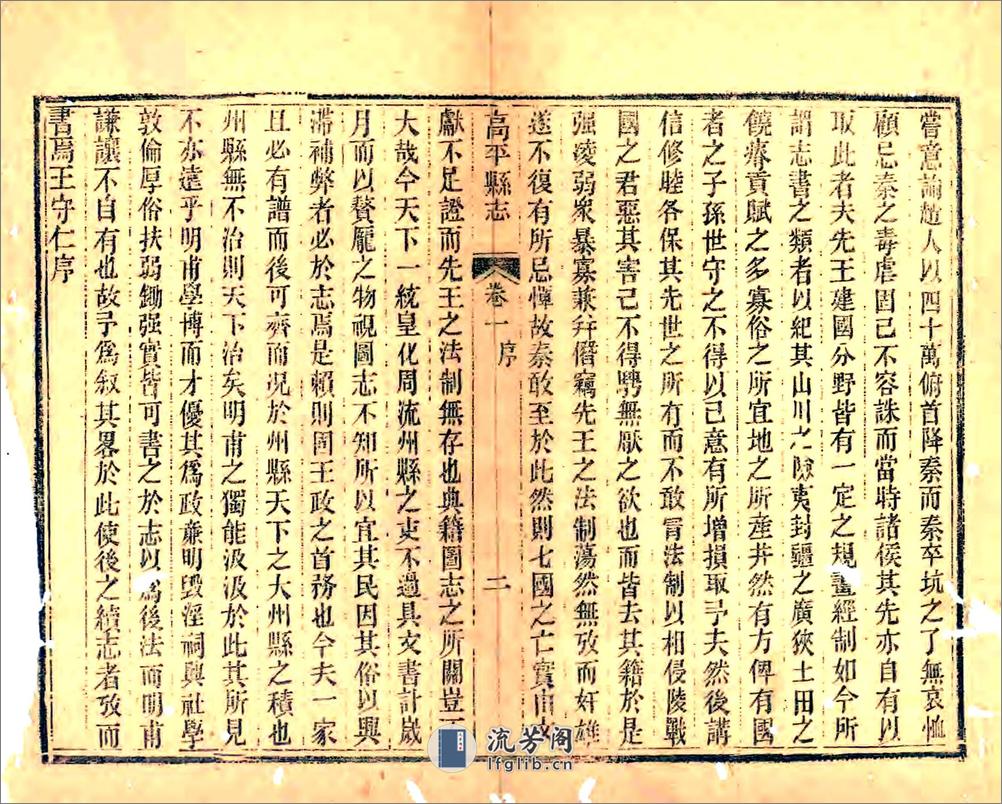 嘗意論趙人以四十萬俯首降秦而秦卒坑之了無哀恤
顧忌秦之毒虐固已不容誅而當時諸侯其先亦自有以
取此者夫先王建國分野皆有一定之規畫經制如今所
謂志書之類者以紀其山川之險夷封疆之廣狹土田之
饒瘠貢賦之多寡俗之所宜地之所產井然有方俾有國
者之子孫世守之不得以己意有所增損取予夫然後講
信修睦各保其先世之所有而不敢冒法制以相侵陵戰
國之君惡其害己不得騁無厭之欲也而皆去其籍於是
强凌弱衆暴寡兼幷僭竊先王之法制蕩然無攷而奸雄
遂不復有所忌憚故秦敢至於此然則七國之亡實由文
高平縣志 卷一 序 二
獻不足證而先王之法制無存也典籍圖志之所關豈不
大哉今天下一統皇化周流州縣之吏不過具文書計歲
月而以贅厖之物視圖志不知所以宜其民因其俗以興
滯補弊者必於志焉是賴則固王政之首務也今夫一家
且必有譜而後可齊而況於州縣天下之大州縣之積也
州縣無不治則天下治矣明甫之獨能汲汲於此其所見
不亦遠乎明甫學博而才優其爲政亷明毀淫祠興社學
敦倫厚俗扶弱鋤强實皆可書之於志以爲後法而明甫
謙讓不自有也故予爲叙其畧於此使後之續志者攷而
書焉王守仁序
流芳阁
lfglib.cn